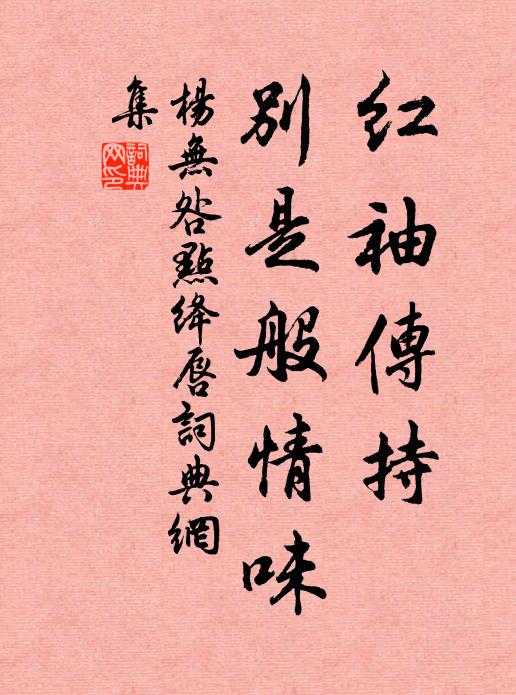 红袖傳持
别是般情味
楊無咎點絳唇詞典網
集
詞典
网印